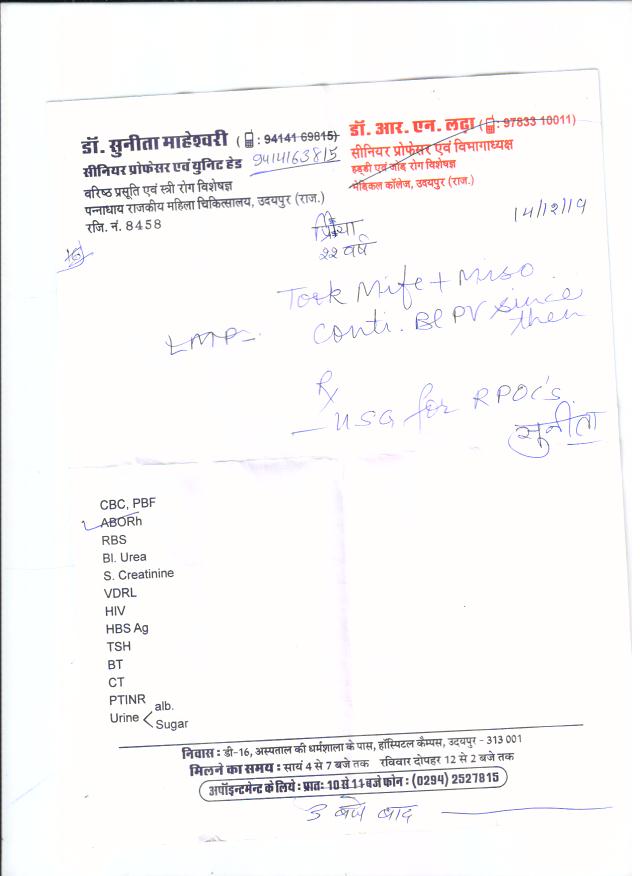 डॉ. सुनीता माहेश्वरी ( : 94141 69815)
9414163815
सीनियर प्रोफेसर एवं युनिट हेड
वरिष्ठ प्रसूति एवं स्त्री रोग विशेषज्ञ
पन्नाधाय राजकीय महिला चिकित्सालय, उदयपुर (राज.)
रजि. नं. 8458
डॉ. आर. एन. लढ़ा ( : 97833 10011)
सीनियर प्रोफेसर एवं विभागाध्यक्ष
हड्डी एवं जोड़ रोग विशेषज्ञ
मेडिकल कॉलेज, उदयपुर (राज.)
प्रिया
२२ वर्ष
14/12/19
Took Mife + Miso
LMP-
Conti. Bl PV since
then
Rx
- USG for RPOC's.
सुनीता
CBC, PBF
ABORh
RBS
Bl. Urea
S. Creatinine
VDRL
HIV
HBS Ag
TSH
BT
CT
PTINR
Urine < alb.
Sugar
निवास : डी-16, अस्पताल की धर्मशाला के पास, हॉस्पिटल कैम्पस, उदयपुर - 313 001
मिलने का समय : सायं 4 से 7 बजे तक रविवार दोपहर 12 से 2 बजे तक
अपॉइन्टमेन्ट के लिये : प्रातः 10 से 11 बजे फोन : (0294) 2527815
3 बजे बाद